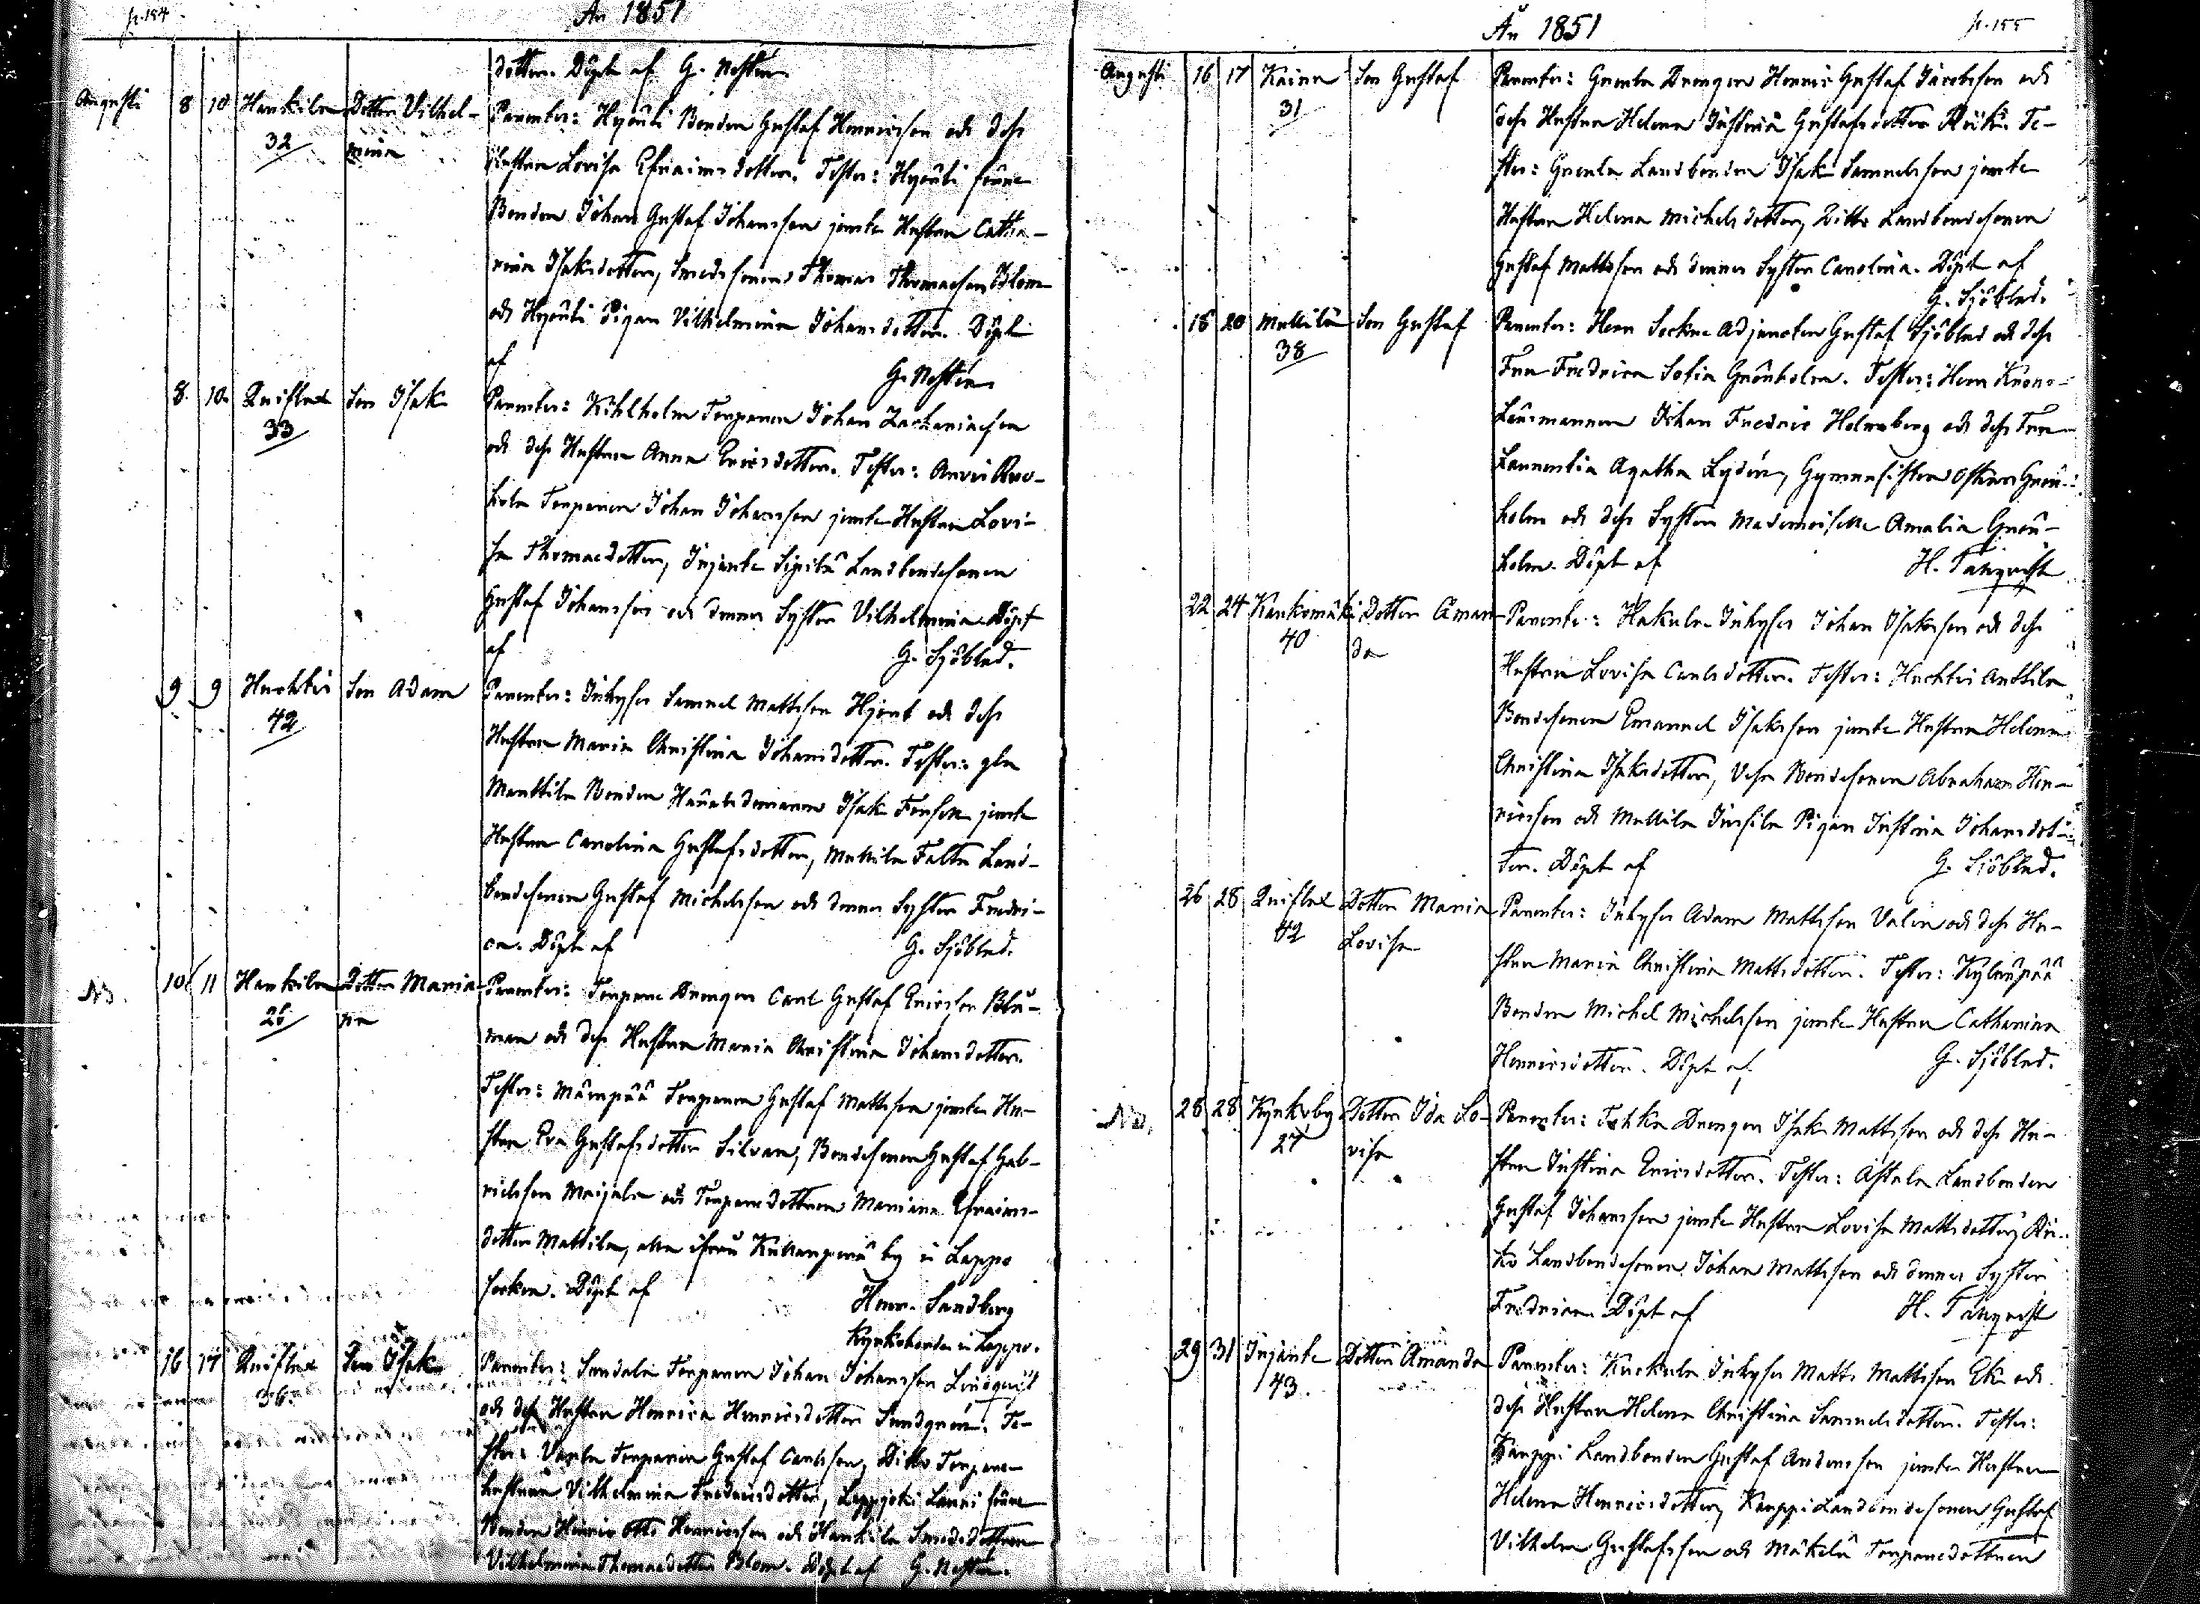 p. 154
År 1851
dotter. Döpt af G. Nostin.
Augusti 8 10 Hankila Dotter Vilhel- Parenter: Hyöüti Bonden Gustaf Henricsson och dess
32 mina Hustru Lovisa Efraimsdotter. Tester: Hyöüti förre
Bonden Johan Gustaf Johansson jemte Hustru Catha-
rina Isaksdotter, Smedssonen Thomas Thomasson Blom
och Hyöüti Pigan Vilhelmina Johansdotter. Döpt
af G. Nostin.
8. 10. Qviflax Son Isak Parenter: Kihlholm Torparen Johan Zachariasson
33 och dess Hustru Anna Ericsdotter. Tester:
holm Torparen Johan Johansson jemte Hustru Lovi-
sa Thomasdotter, Injante Sipilä Landbondesonen
Gustaf Johansson och dennes Syster Vilhelmina. Döpt
af G. Sjöblad.
9 9 Huchtis Son Adam Parenter: Inhyses Samuel Mattsson Hjort och dess
42 Hustru Maria Christina Johansdotter. Tester: gla
Manttila Bonden Häradsdomaren Isak Fonsell jemte
Hustru Carolina Gustafsdotter, Mullila Falta Land-
bondesonen Gustaf Michelsson och dennes Syster Fredri-
ca. Döpt af G. Sjöblad.
No. 10 11 Hankila Dotter Maria- Parenter: Torpare Drengen Carl Gustaf Ericsson Blå-
25 na man och dess Hustru Maria Christina Johansdotter.
Tester: Männpää Torparen Gustaf Mattsson jemte Hu-
stru Eva Gustafsdotter Silvan, Bondesonen Gustaf Gab-
rielsson Maijala och Torparedottren Mariana Efraims-
dotter Mattila, alla ifrån Kullanperä by i Lappo
socken. Döpt af Henr. Sandberg
Kyrkoherde i Lappo.
16 17 Qviflax Son Isak Parenter: Sandals Torparen Johan Johansson Lindqvist
36. och dess Hustru Henrica Henricsdotter Sundgren. Te-
ster: Torparen Gustaf Carlsson, Ditto Torpare
hustrun Vilhelmina Fredricsdotter, Leppijoki Lauri förre
Bonden Henric Otto Henricsson och Hankila Smedsdottren
Vilhelmina Thomasdotter Blom. Döpt af G. Nostin.
År 1851
p. 155
Augusti 16 17 Kaina Son Gustaf Parenter: Gunla Drengen Henric Gustaf Jacobsson och
31 dess Hustru Helena Justina Gustafsdotter Rück. Te-
ster: Gunla Landbonden Isak Samuelsson jemte
Hustru Helena Michelsdotter, Ditto Landbondesonen
Gustaf Mattsson och dennes Syster Carolina. Döpt af
G. Sjöblad.
18 20 Mullila Son Gustaf Parenter: Herr Sockne Adjuncten Gustaf Sjöblad och dess
38 Fru Fredrica Sofia Grönholm. Tester: Herr Krono-
Länsmannen Johan Fredric Holmberg och dess Fru
Laurentia Agatha Lydén, Gymnasisten Oskar Grön-
holm och dess Syster Mademoiselle Amalia Grön-
holm. Döpt af H. Tåhqvist
22 24 Kankomäki Dotter Aman- Parenter: Hakula Inhyses Johan Isaksson och dess
40 da Hustru Lovisa Carlsdotter. Tester: Huchtis Anttila
Bondesonen Emanuel Isaksson jemte Hustru Helena
Christina Isaksdotter, Vesa Bondesonen Abraham Hen-
ricsson och Mullila Jussila Pigan Justina Johansdot-
ter. Döpt af G. Sjöblad.
26 28 Qviflax Dotter Maria Parenter: Inhyses Adam Mattsson Valin och dess Hu-
42 Lovisa stru Maria Christina Mattsdotter. Tester: Kylänpää
Bonden Michel Michelsson jemte Hustru Catharina
Henricsdotter. Döpt af G. Sjöblad.
No. 28 28 Kyrkoby Dotter Ida Lo- Parenter: Tohka Drengen Isak Mattsson och dess Hu-
27 visa stru Justina Ericsdotter. Tester: Astala Landbonden
Gustaf Johansson jemte Hustru Lovisa Mattsdotter, Ri-
ko Landbondesonen Johan Mattsson och dennes Syster
Fredrica. Döpt af H. Tåhqvist
29 31 Injante Dotter Amanda Parenter: Kuckula Inhyses Matts Mattsson Ek och
43. dess Hustru Helena Christina Samuelsdotter. Tester:
Karppi Landbonden Gustaf Andersson jemte Hustru
Helena Henricsdotter, Karppi Landbondesonen Gustaf
Vilhelm Gustafsson och Mäkelä Torparedottren